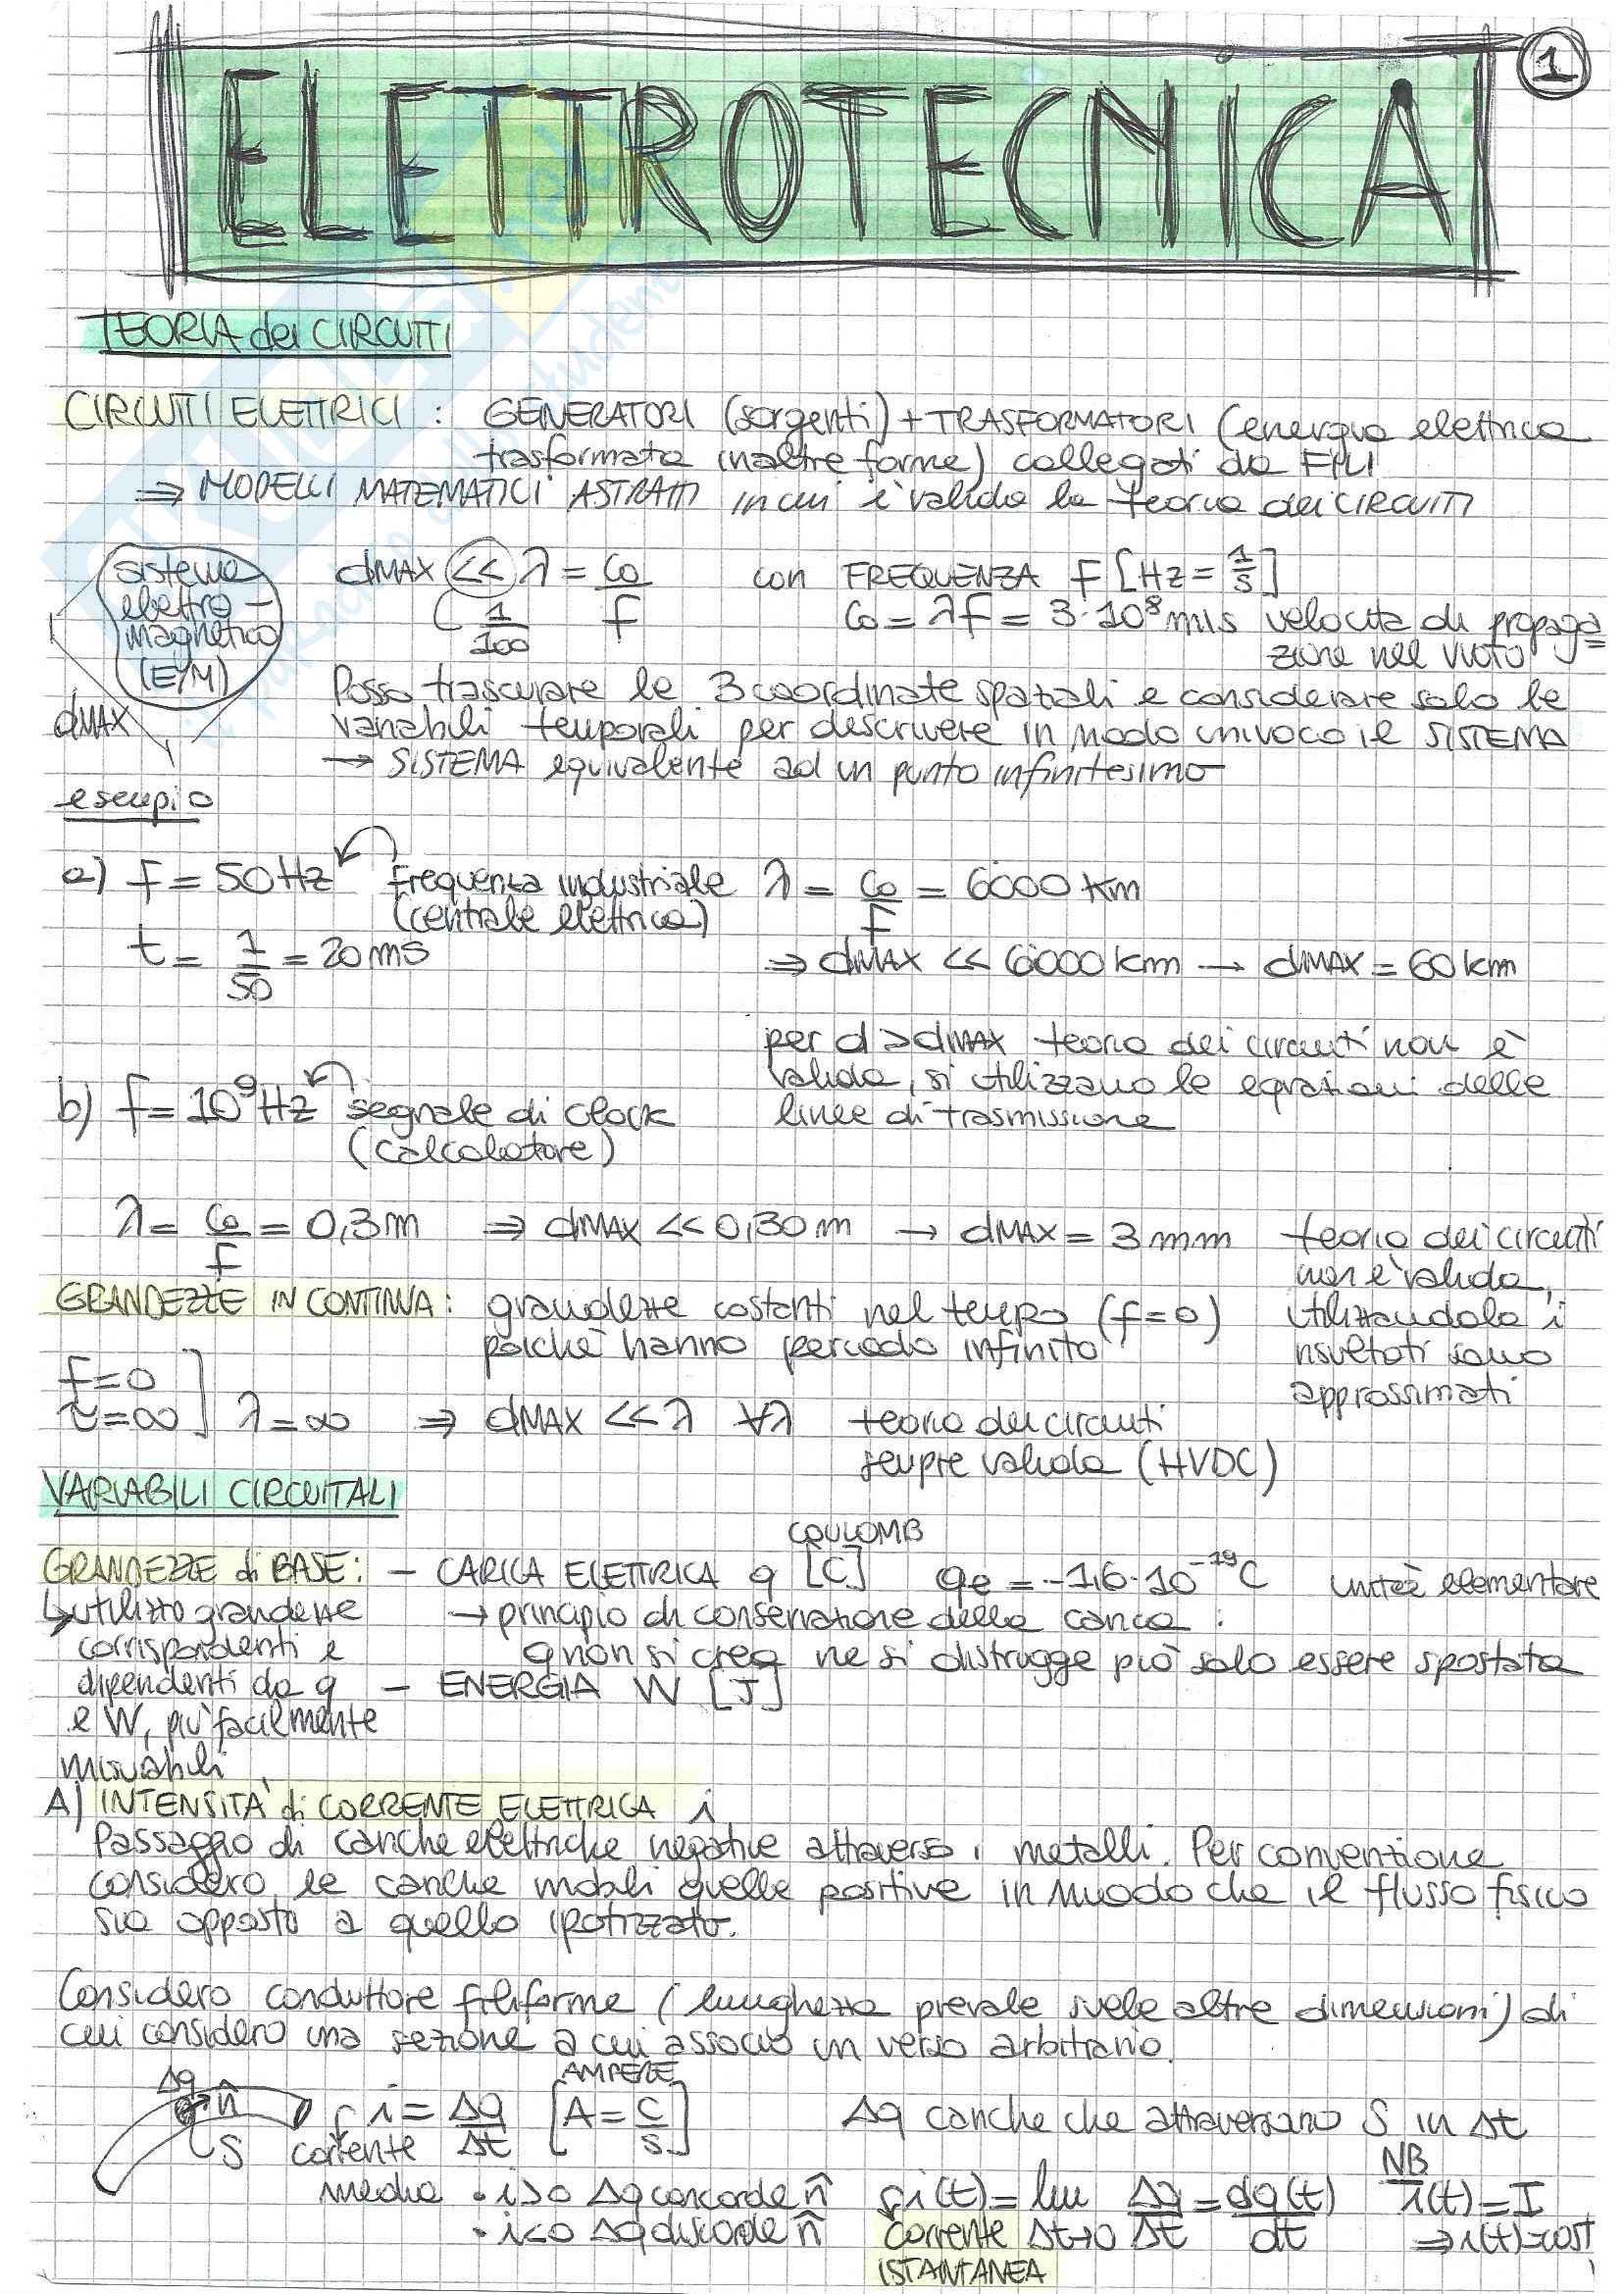 1
ELETTROTECNICA
TEORIA dei CIRCUITI
CIRCUITI ELETTRICI : GENERATORI (sorgenti) + TRASFORMATORI (energia elettrica
trasformata in altre forme) collegati da FILI
⇒ MODELLI MATEMATICI ASTRATTI in cui è valida la teoria dei CIRCUITI
sistema
elettro-
magnetico
(E/M)
dMAX
dMAX << λ = c0/f con FREQUENZA f [Hz = 1/s]
1/100 c0 = λf = 3·10⁸ m/s velocità di propaga
zione nel vuoto
Posso trascurare le 3 coordinate spaziali e considerare solo le
variabili temporali per descrivere in modo univoco il SISTEMA
→ SISTEMA equivalente ad un punto infinitesimo
esempio
a) f = 50 Hz frequenza industriale λ = c0/f = 6000 km
(centrale elettrica)
t = 1/50 = 20 ms ⇒ dMAX << 6000 km → dMAX = 60 km
per d > dMAX teoria dei circuiti non è
valida, si utilizzano le equazioni delle
linee di trasmissione
b) f = 10⁹ Hz segnale di clock
(calcolatore)
λ = c0/f = 0,3 m ⇒ dMAX << 0,30 m → dMAX = 3 mm teoria dei circuiti
non è valida,
utilizzandola i
risultati sono
approssimati
GRANDEZZE IN CONTINUA : grandezze costanti nel tempo (f=0)
poichè hanno periodo infinito
f=0
τ=∞ ] λ=∞ ⇒ dMAX << λ ∀λ teoria dei circuiti
sempre valida (HVDC)
VARIABILI CIRCUITALI
GRANDEZZE di BASE: - CARICA ELETTRICA q [C] COULOMB qe = -1,6·10⁻¹⁹ C unità elementare
↳ utilizzo grandezze
corrispondenti e
dipendenti da q
e W, più facilmente
misurabili
→ principio di conservazione della carica :
q non si crea ne si distrugge può solo essere spostata
- ENERGIA W [J]
A) INTENSITÀ di CORRENTE ELETTRICA i
Passaggio di cariche elettriche negative attraverso i metalli. Per convenzione
considero le cariche mobili quelle positive in modo che il flusso fisico
sia opposto a quello ipotizzato.
Considero conduttore filiforme (lunghezza prevale sulle altre dimensioni) di
cui considero una sezione a cui associo un verso arbitrario.
Δq n̂
S
i = Δq/Δt [A = C/s] AMPERE Δq cariche che attraversano S in Δt
corrente
media • i>0 Δq concorde n̂
• i<0 Δq discorde n̂
i(t) = lim Δt→0 Δq/Δt = dq(t)/dt
corrente
ISTANTANEA
NB
i(t) = I
⇒ i(t)=cost